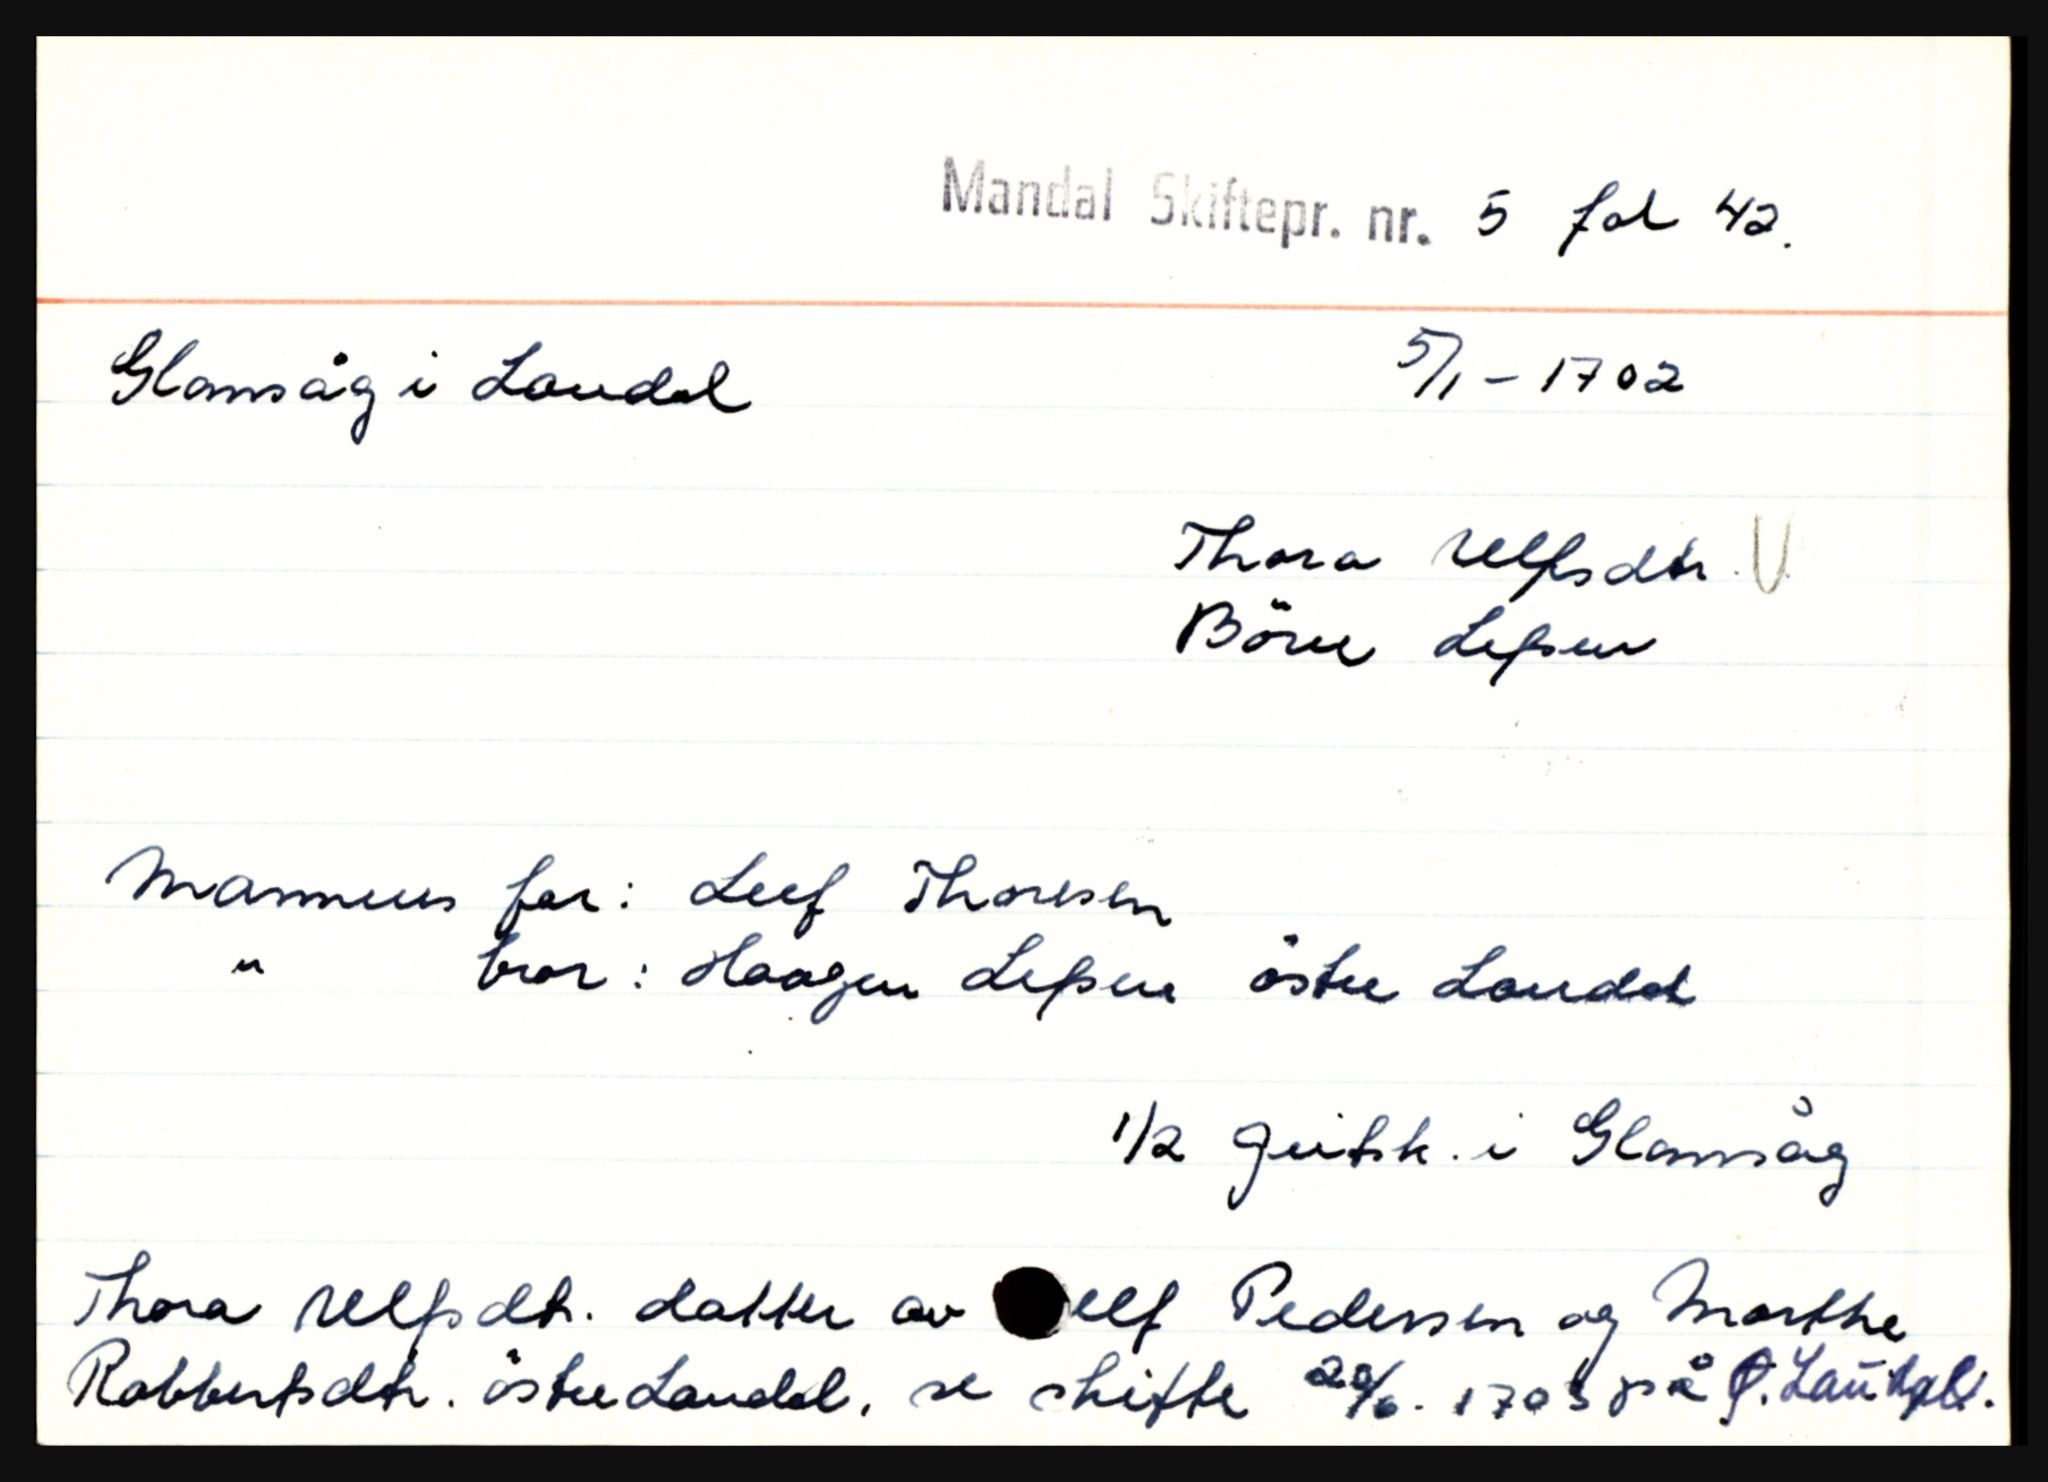 Mandal Skiftepr. nr. 5 fol 42.
Glamsåg i Laudal 5/1 - 1702
Thora Uelfsdtr. U
Börre Lefsen
Mannens far: Leef Thoresen
" bror: Haagen Lefsen östre Laudal
1/2 Geitsk. i Glamsåg
Thora Uelfsdtr. datter av elf Pedersen og Marthe
Robbertsdtr. östre Laudal, se skifte 20/6. 1703 på Ø. Laudal.